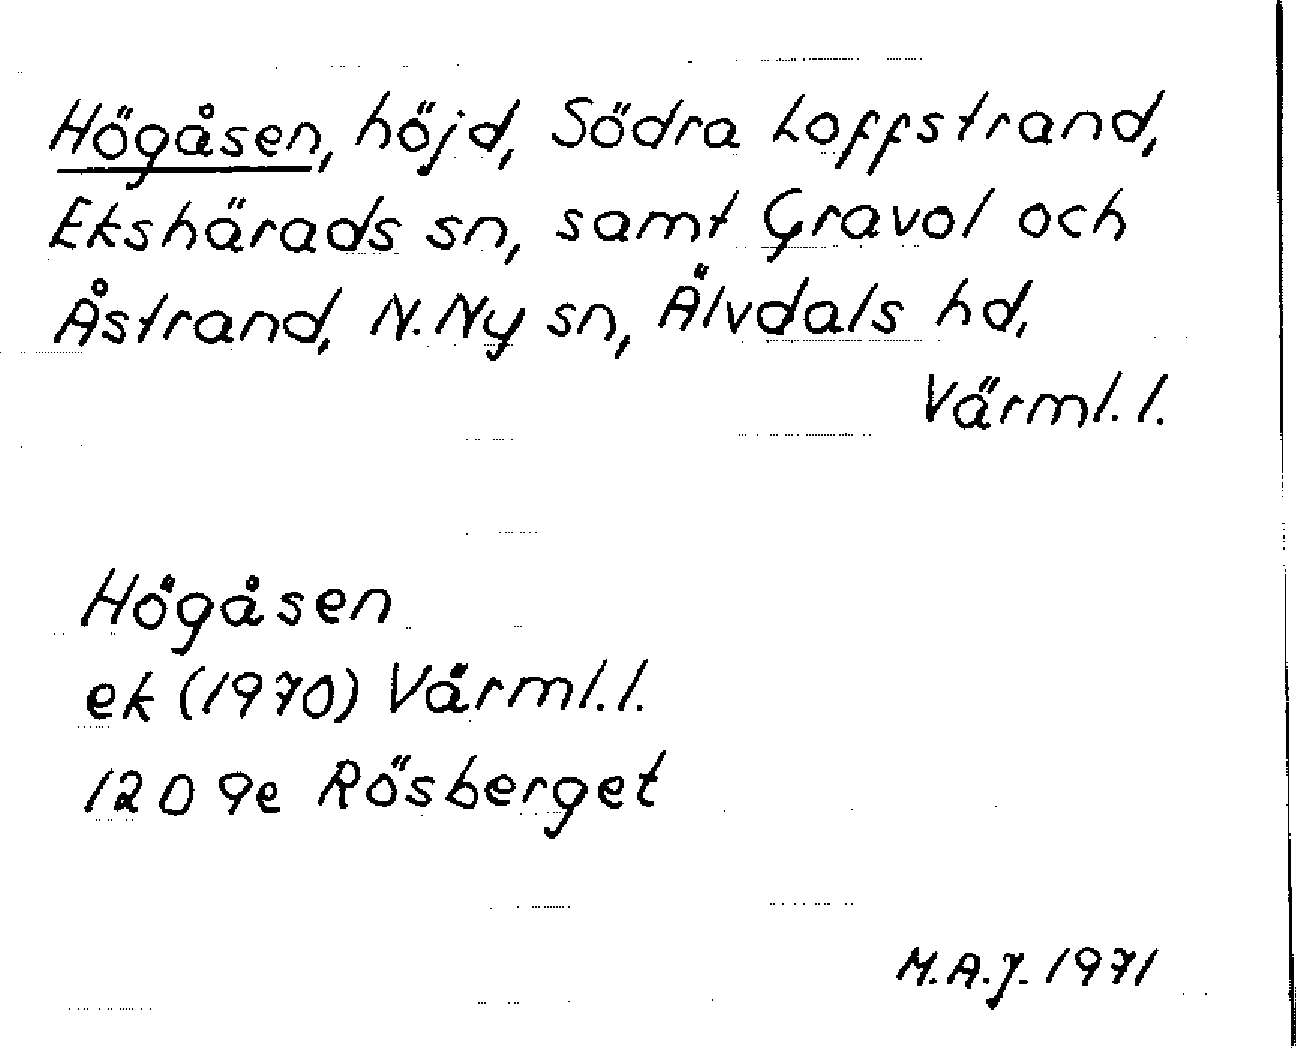 Högåsen, höjd, Södra Loffstrand,
Ekshärads sn, samt Gravol och
Åstrand, N. Ny sn, Älvdals hd,
Värml. l.
Högåsen
ek (1970) Värml. l.
12D 9e Rösberget
M.A.J. 1971